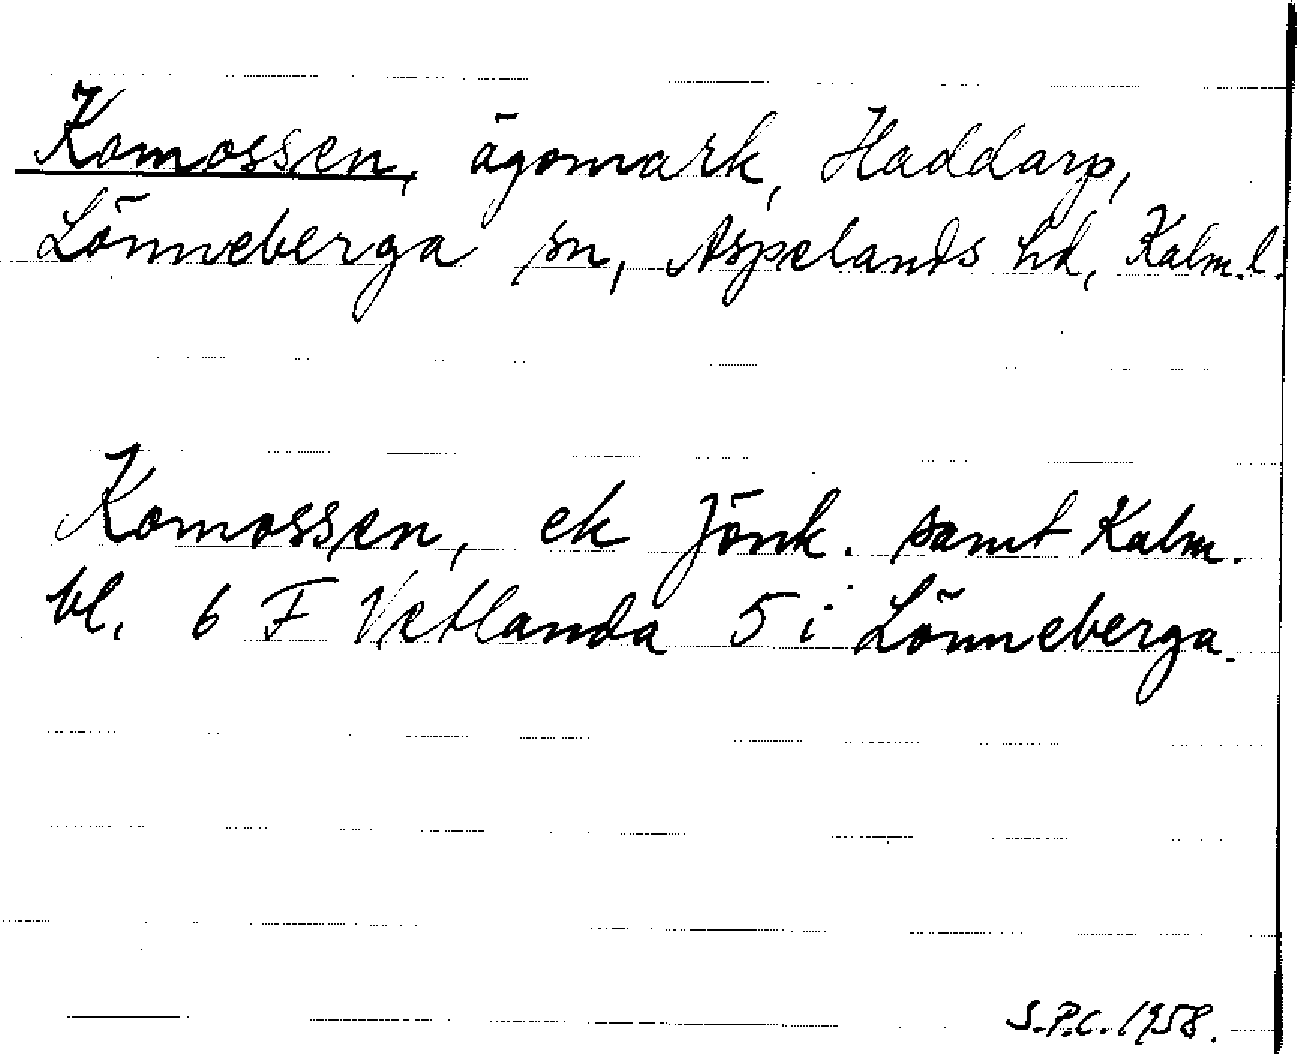 Komossen, ägomark, Haddarp,
Lönneberga sn, Aspelands hd, Kalm.l.
Komossen, ek Jönk. samt Kalm.
bl. 6 F Vetlanda 5 i Lönneberga.
S.P.C. 1958.